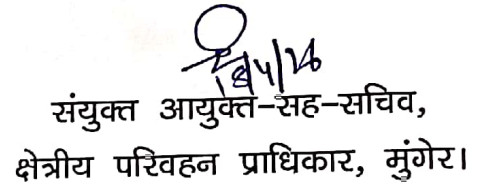 संयुक्त आयुक्त-सह-सचिव,
क्षेत्रीय परिवहन प्राधिकार, मुंगेर।